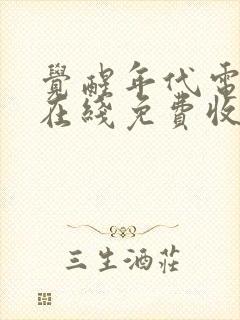 覺醒年代電
在綫免費收
三生酒莊